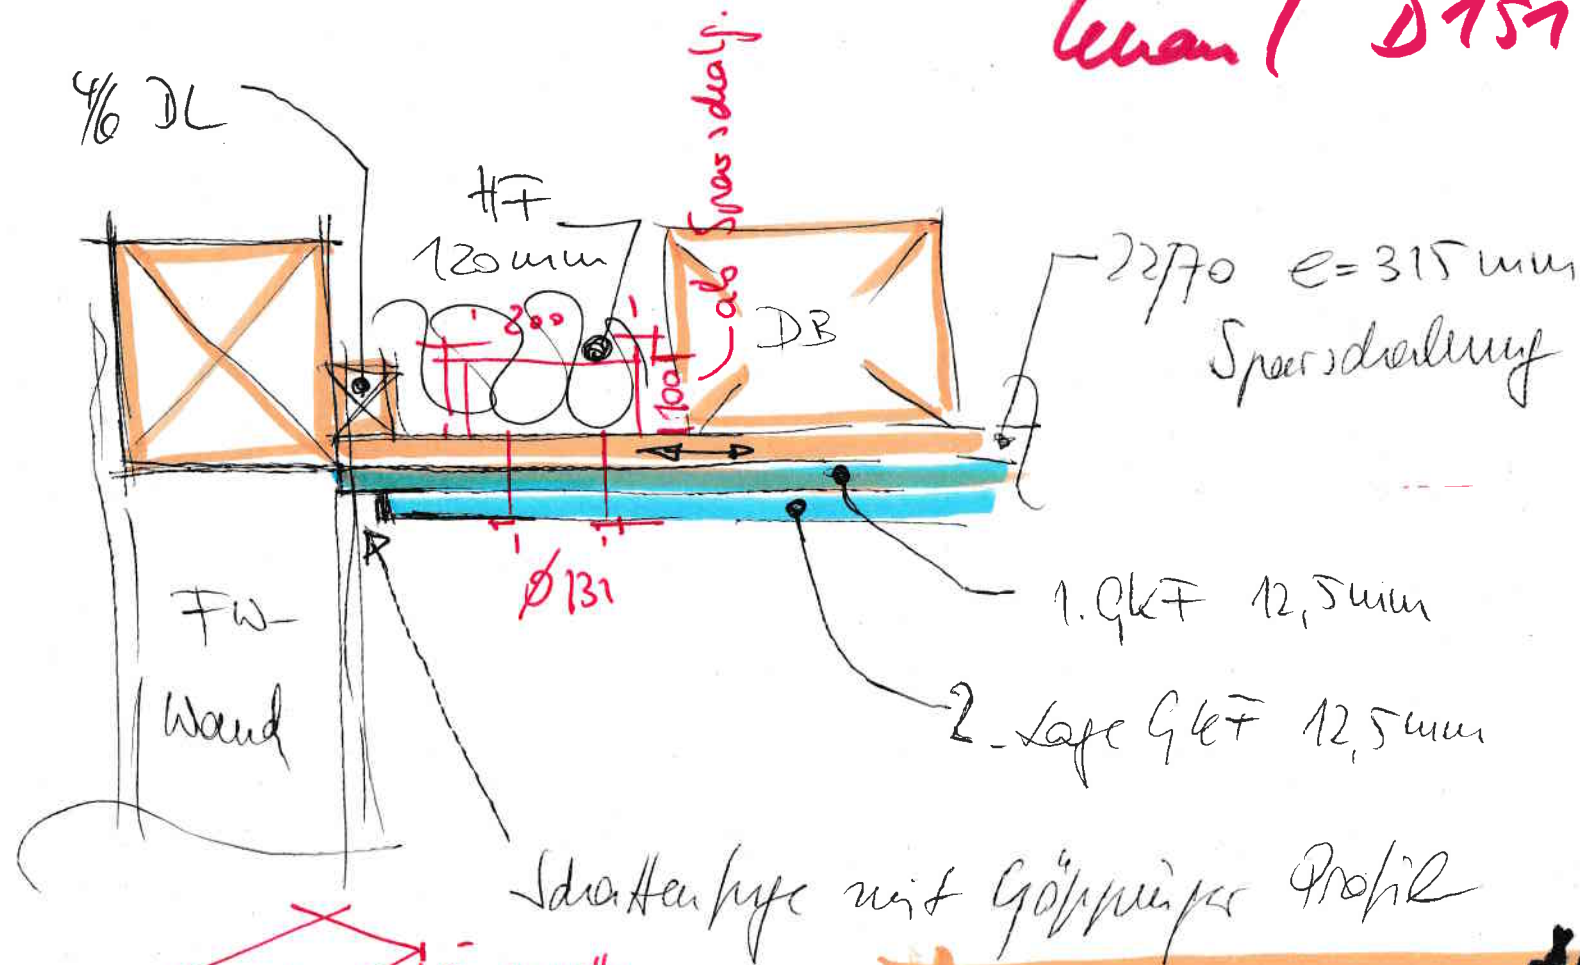 D151
4/6 DL
HF
120 mm
200
100
ab Sparschalg.
DB
22/70 e=315 mm
Sparschalung
Ø131
FW-
Wand
1. GKF 12,5mm
2. Lage GKF 12,5mm
Schattenfuge mit Göppinger Profil